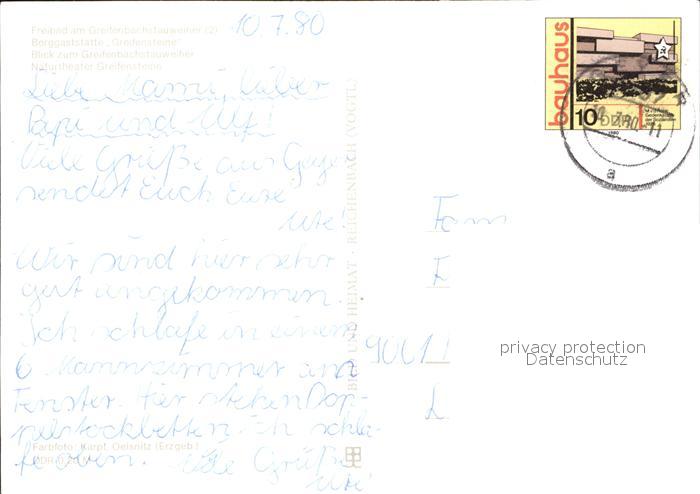 Freibad am Greifenbachstauweiher (2)
Berggaststätte „Greifensteine"
Blick zum Greifenbachstauweiher
Naturtheater Greifensteine
10.7.80
Liebe Mammi, lieber
Papi und Ulf!
Viele Grüße aus Geyer
sendet Euch Eure
Ute!
Wir sind hier sehr
gut angekommen.
Ich schlafe in einem
6 Mannzimmer am
Fenster. Hier stehen Dop-
pelstockbetten. Ich schla-
fe oben. Viele Grüße
Ute!
Farbfoto: Karpf, Oelsnitz (Erzgeb.)
BILD UND HEIMAT · REICHENBACH (VOGTL)
bauhaus
10 DDR
1980
Fam
F
9061
L
privacy protection
Datenschutz